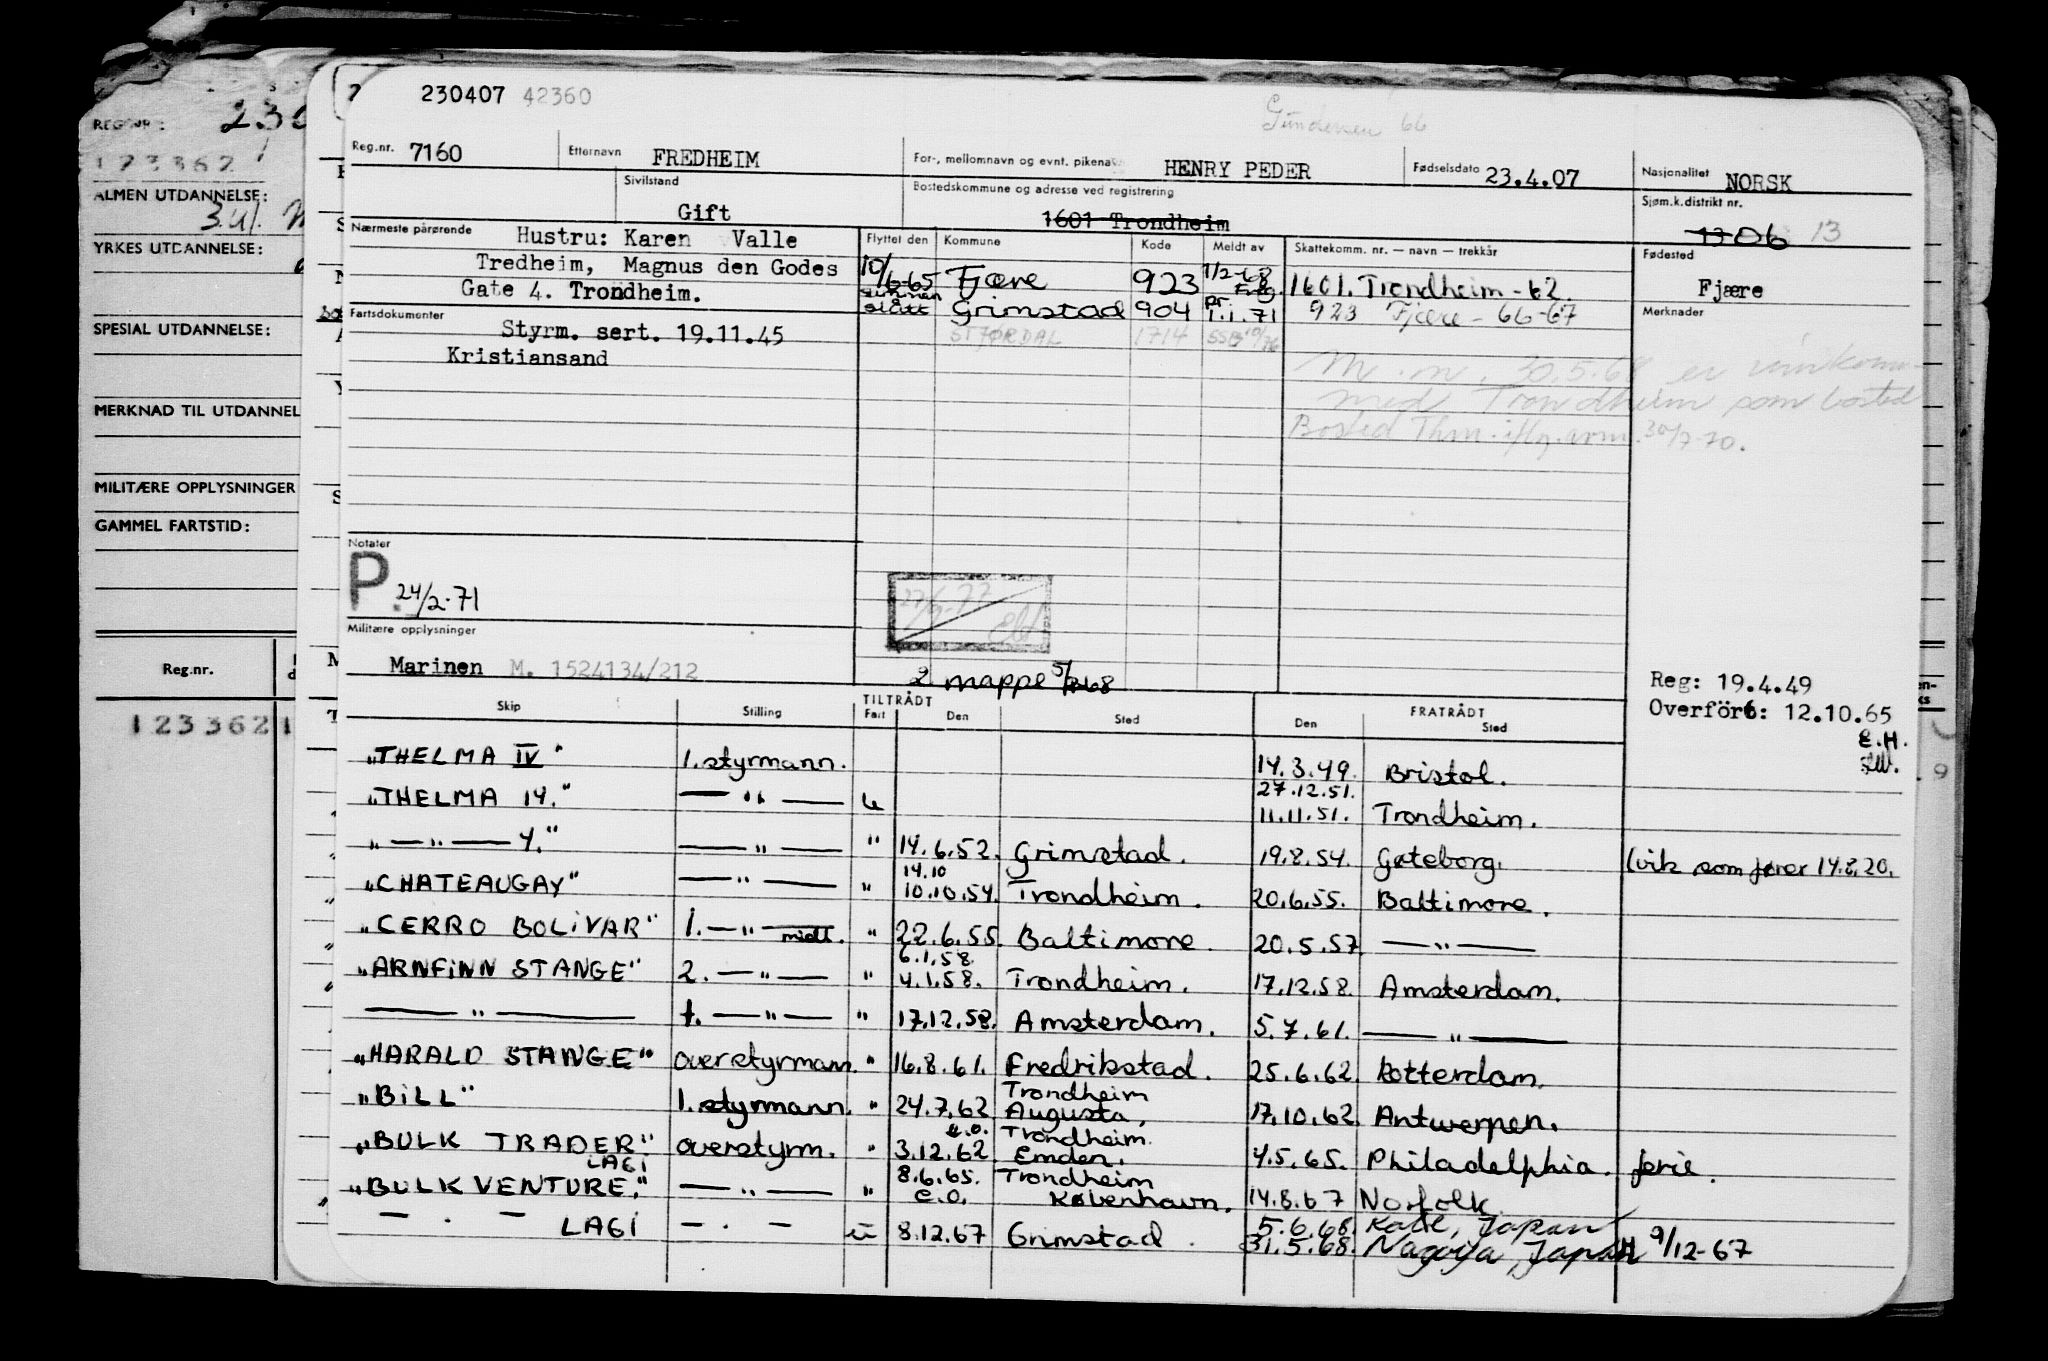 230407 42360
Gundersen 66
Reg.nr. 7160 Etternavn FREDHEIM For-, mellomnavn og evnt. pikena HENRY PEDER Fødselsdato 23.4.07 Nasjonalitet NORSK
Sivilstand Gift Bostedskommune og adresse ved registrering 1601 Trondheim Sjøm.k.distrikt nr. 1306 13
Nærmeste pårørende Hustru: Karen Valle
Tredheim, Magnus den Godes
Gate 4. Trondheim.
Flyttet den Kommune Kode Meldt av Skattekomm. nr. — navn — trekkår Fødested
10/6-65 Fjære 923 1/2-68 1601. Trondheim - 62. Fjære
slått Grimstad 904 pr. 1.1.71 923 Fjære - 66-67 Merknader
STJØRDAL 1714
Fartsdokumenter Styrm. sert. 19.11.45
Kristiansand
M.m. 30.5.68 er
med Trondheim som bosted
Bosted Thm. 30/7-70.
Notater
P. 24/2-71
Militære opplysninger
Marinen M. 1524134/212
2. mappe
Reg: 19.4.49
Overført: 12.10.65
E.H.
Skip Stilling TILTRÅDT Fart Den Sted FRATRÅDT Den Sted
"THELMA IV" 1.styrmann. 14.3.49. Bristol.
27.12.51.
"THELMA 14." — " — u 11.11.51. Trondheim.
" — " — 4." — " — " 14.6.52. Grimstad. 19.8.54. Gøteborg. (vik som fører 14.8.20.
14.10
"CHATEAUGAY" — " — " 10.10.54. Trondheim. 20.6.55. Baltimore.
"CERRO BOLIVAR" 1. — " — midl. " 22.6.55. Baltimore. 20.5.57 — " —
6.1.58.
"ARNFINN STANGE" 2. — " — " 4.1.58. Trondheim. 17.12.58. Amsterdam.
— " — 1. — " — " 17.12.58. Amsterdam. 5.7.61. — " —
"HARALD STANGE" overstyrmann. " 16.8.61. Fredrikstad. 25.6.62. Rotterdam.
Trondheim
"BILL" 1.styrmann. " 24.7.62 Augusta, 17.10.62. Antwerpen.
e.o. Trondheim.
"BULK TRADER." overstyrm. " 3.12.62 Emden. 4.5.65. Philadelphia. ferie.
LAGI 8.6.65. Trondheim
"BULK VENTURE." — " — " e.o. København. 14.8.67 Norfolk
5.6.68. Kobe, Japan
— . — LAGI — . — u 8.12.67 Grimstad. 31.5.68. Nagoya, Japan 9/12-67
REG.NR.: 230
123362
ALMEN UTDANNELSE:
YRKES UTDANNELSE:
SPESIAL UTDANNELSE:
MERKNAD TIL UTDANNEL
MILITÆRE OPPLYSNINGER
GAMMEL FARTSTID:
Reg.nr.
123362